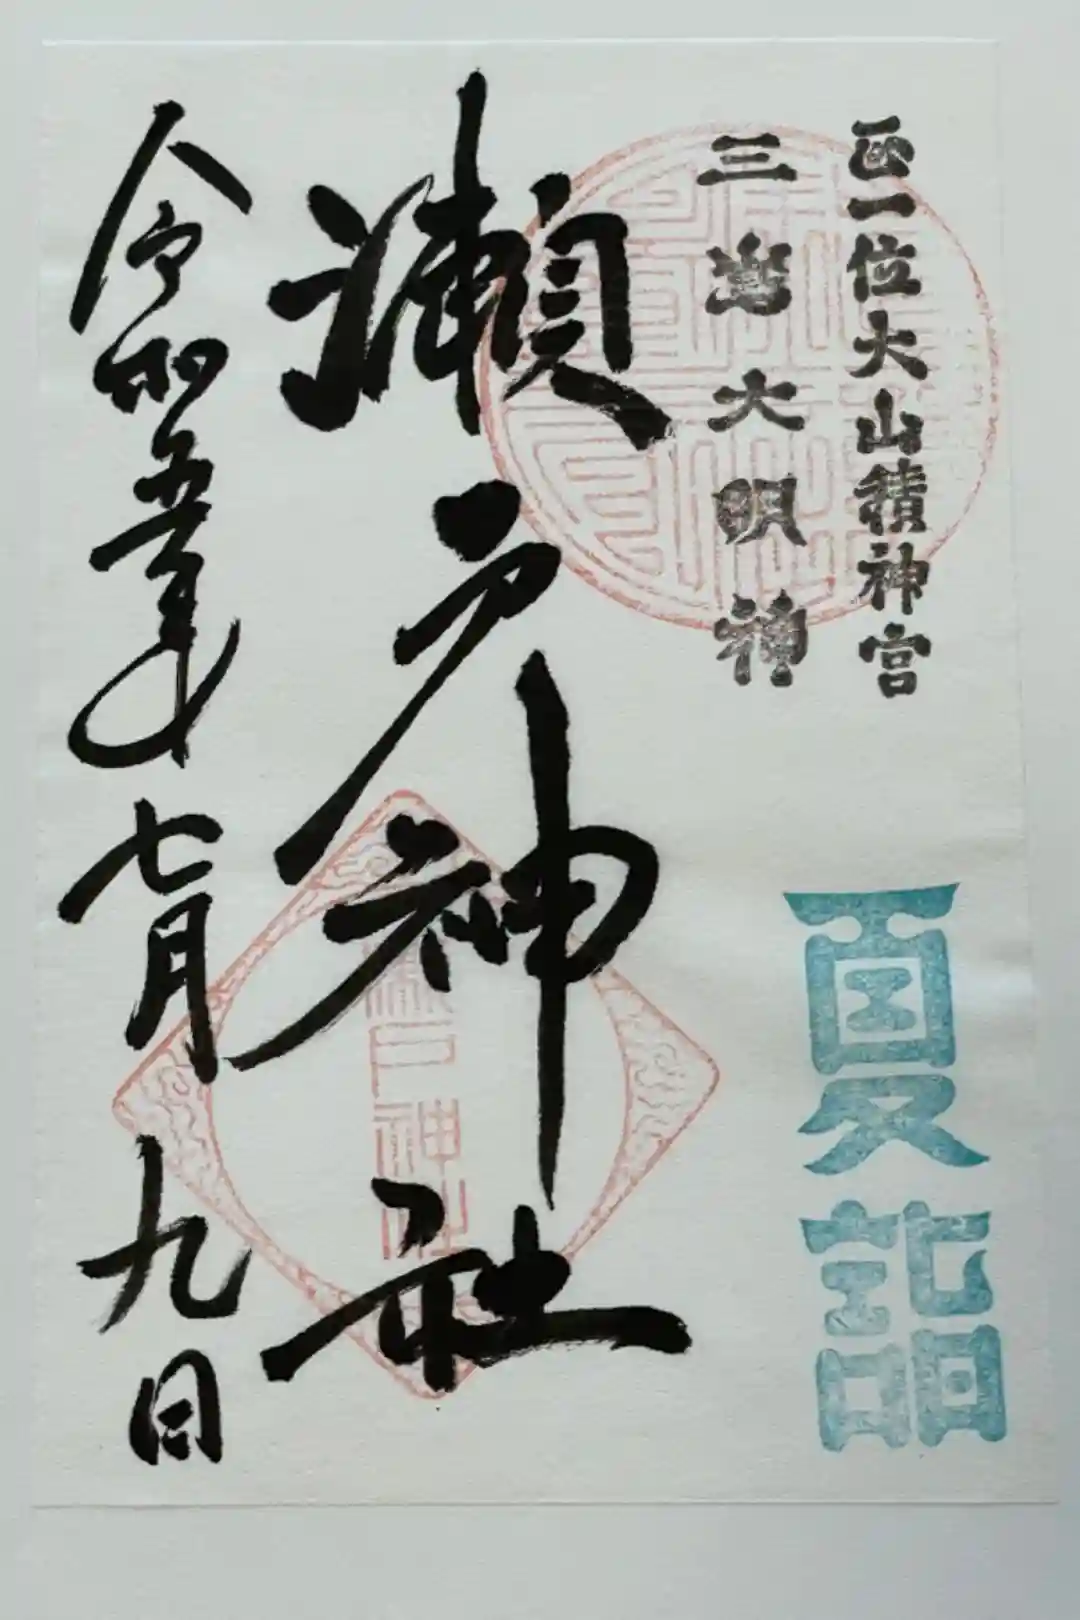 正一位大山積神宮
三嶌大明神
夏詣
瀬戸神社
瀬戸神社
令和五年七月九日